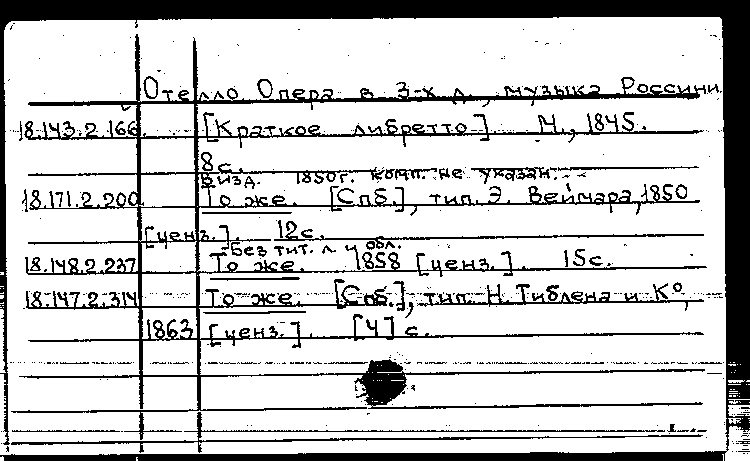 Отелло Опера в 3-х д., музыка Россини
18.143.2.166. [Краткое либретто]. М., 1845.
8с.
В изд. 1850г. комп. не указан.
18.171.2.200. То же. [Спб.], тип. Э. Веймара, 1850
[ценз.]. 12с.
Без тит. л. и обл.
18.148.2.237. То же. 1858 [ценз.]. 15с.
18.147.2.314. То же. [Спб.], тип. Н. Тиблена и К°,
1863 [ценз.]. [4] с.